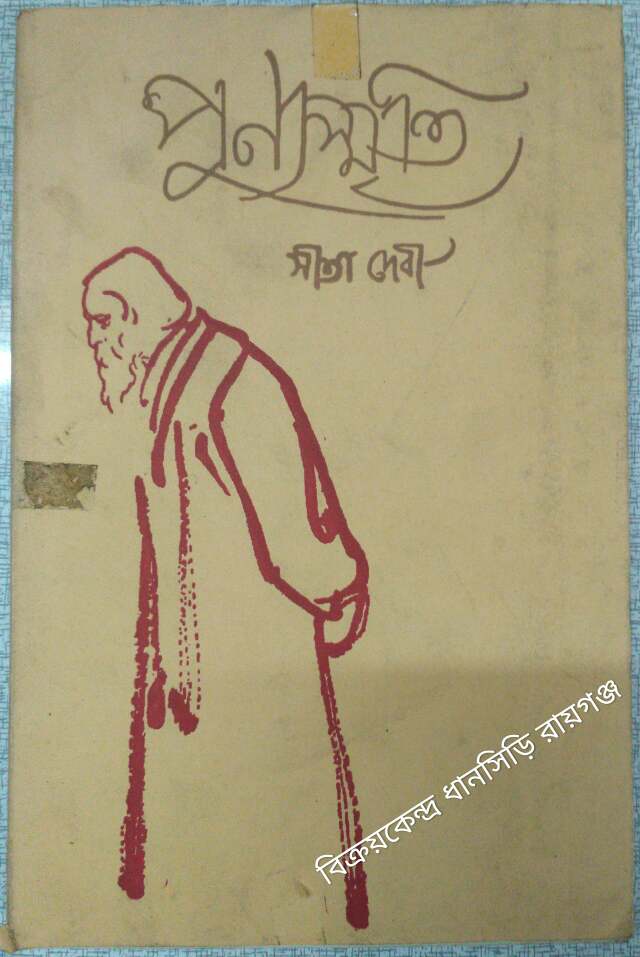 পুণ্যস্মৃতি
সীতা দেবী
বিক্রয়কেন্দ্র ধানসিড়ি রায়গঞ্জ